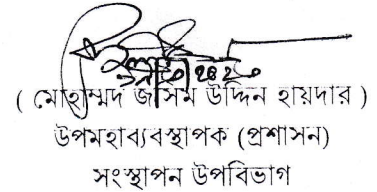 ( মোহাম্মদ জসিম উদ্দিন হায়দার )
উপমহাব্যবস্থাপক (প্রশাসন)
সংস্থাপন উপবিভাগ